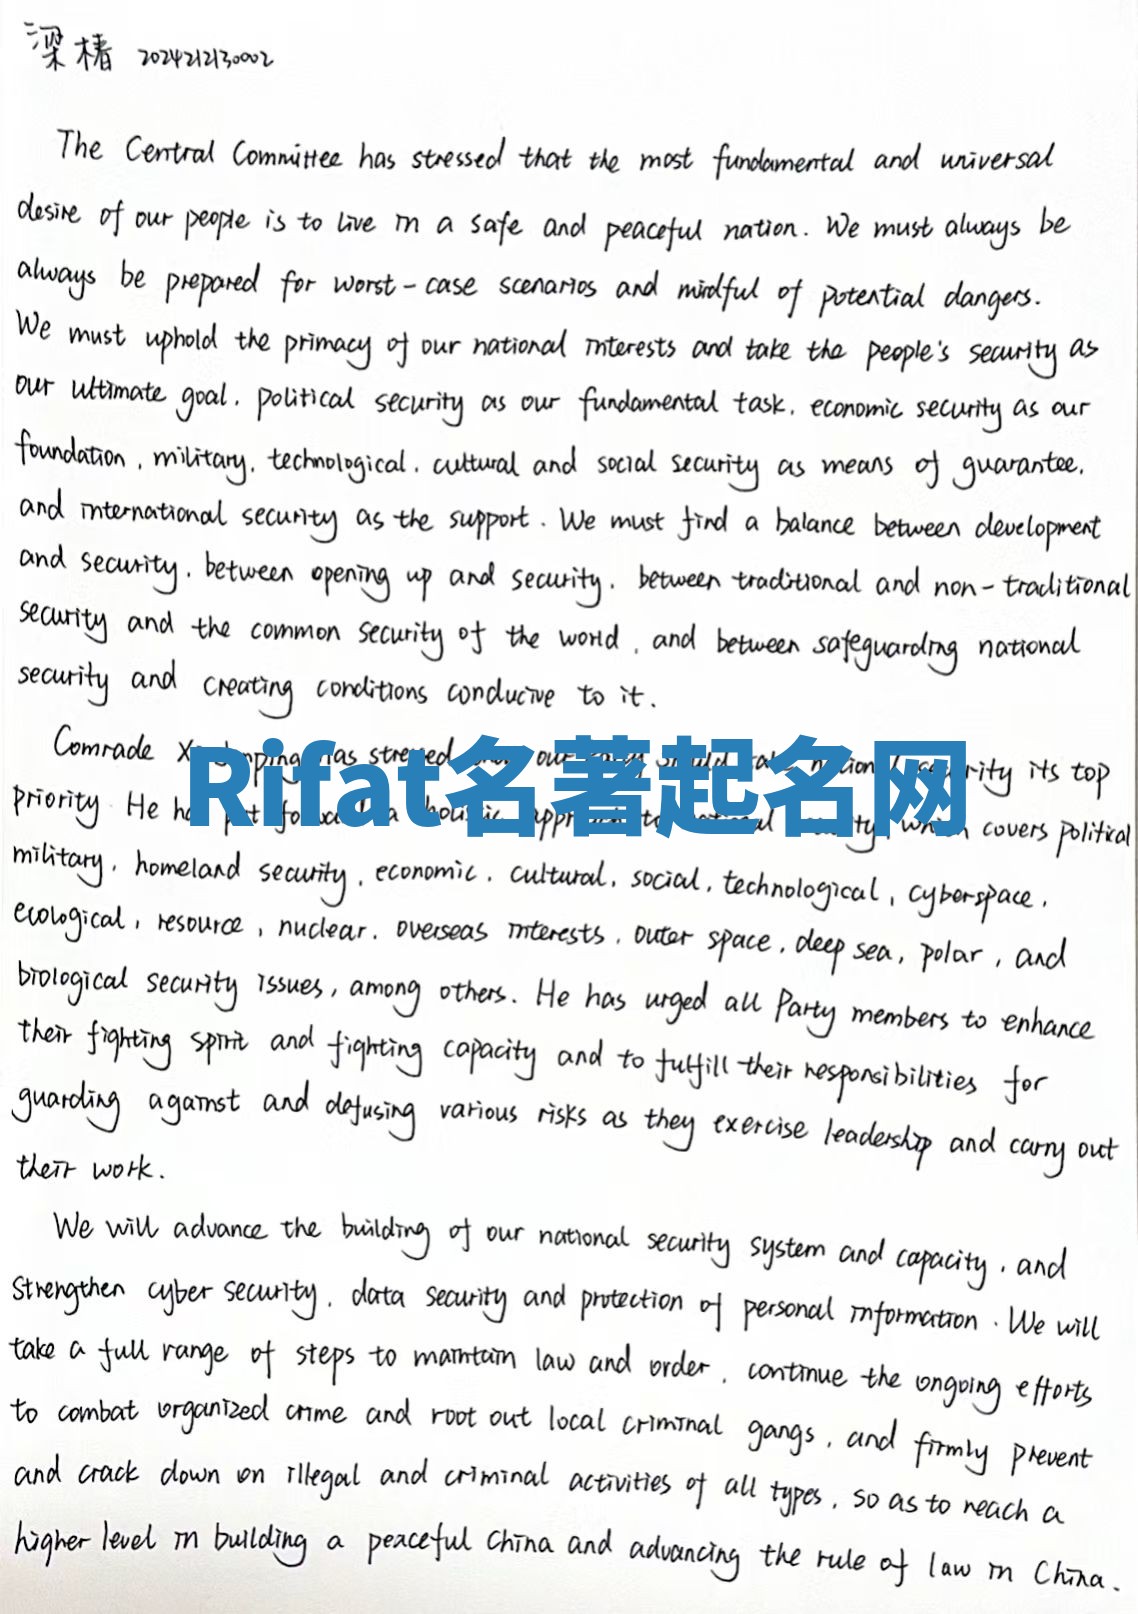 梁椿 2024212130002
The Central Committee has stressed that the most fundamental and universal
desire of our people is to live in a safe and peaceful nation. We must always be
always be prepared for worst-case scenarios and mindful of potential dangers.
We must uphold the primacy of our national interests and take the people's security as
our ultimate goal, political security as our fundamental task, economic security as our
foundation, military, technological, cultural and social security as means of guarantee,
and international security as the support. We must find a balance between development
and security, between opening up and security, between traditional and non-traditional
security and the common security of the world, and between safeguarding national
security and creating conditions conducive to it.
Comrade has stressed our its top
Rifat名著起名网
priority. He covers political
military, homeland security, economic, cultural, social, technological, cyberspace,
ecological, resource, nuclear, overseas interests, outer space, deep sea, polar, and
biological security issues, among others. He has urged all Party members to enhance
their fighting spirit and fighting capacity and to fulfill their responsibilities for
guarding against and defusing various risks as they exercise leadership and carry out
their work.
We will advance the building of our national security system and capacity, and
strengthen cyber security, data security and protection of personal information. We will
take a full range of steps to maintain law and order, continue the ongoing efforts
to combat organized crime and root out local criminal gangs, and firmly prevent
and crack down on illegal and criminal activities of all types, so as to reach a
higher level in building a peaceful China and advancing the rule of law in China.